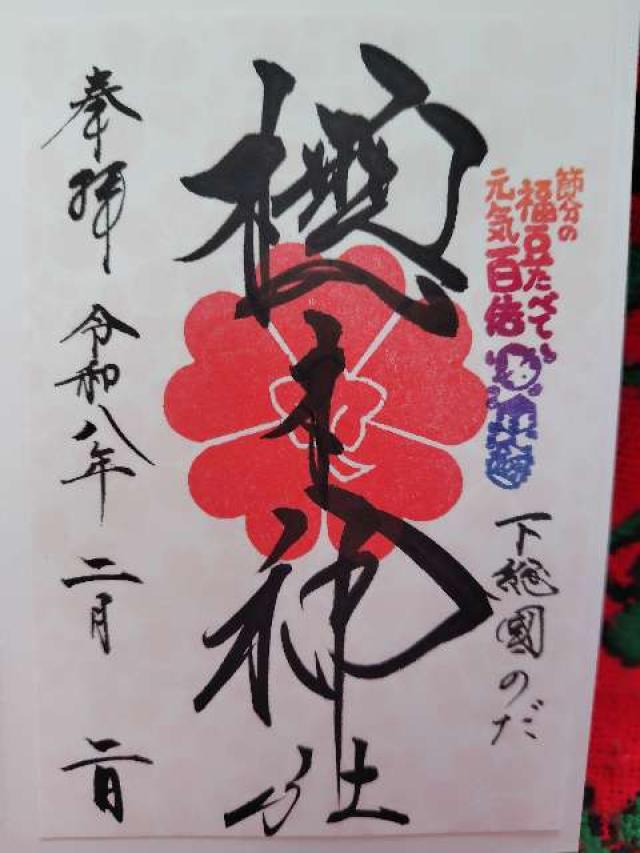 節分の
福豆たべて
元気百倍
下総國のだ
櫻木神社
奉拝
令和八年 二月 二日